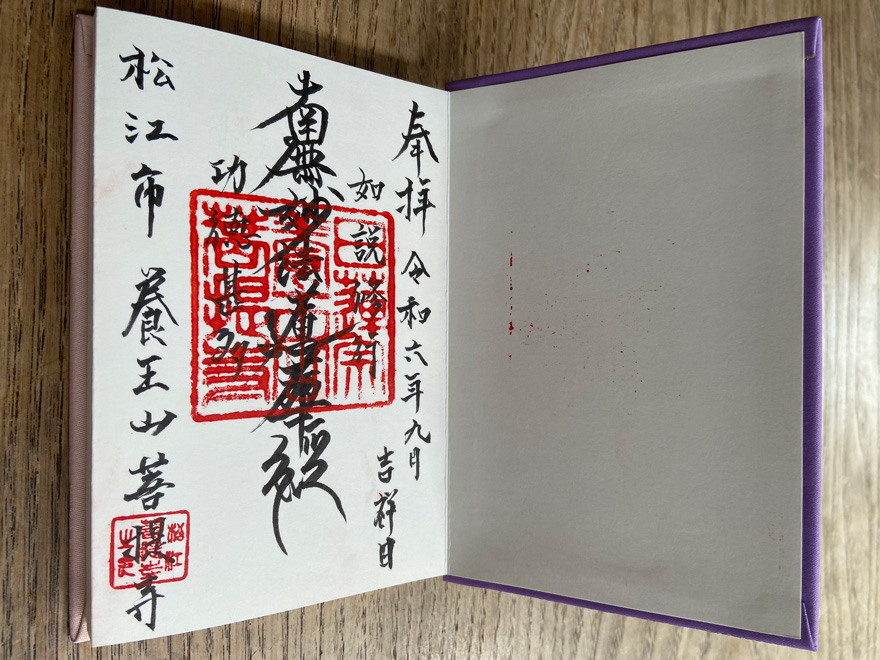 奉拝 令和六年九月
吉祥日
如説修行
南無妙法蓮華経
功徳甚多
松江市 養王山菩提寺
日蓮宗
菩提寺
松江